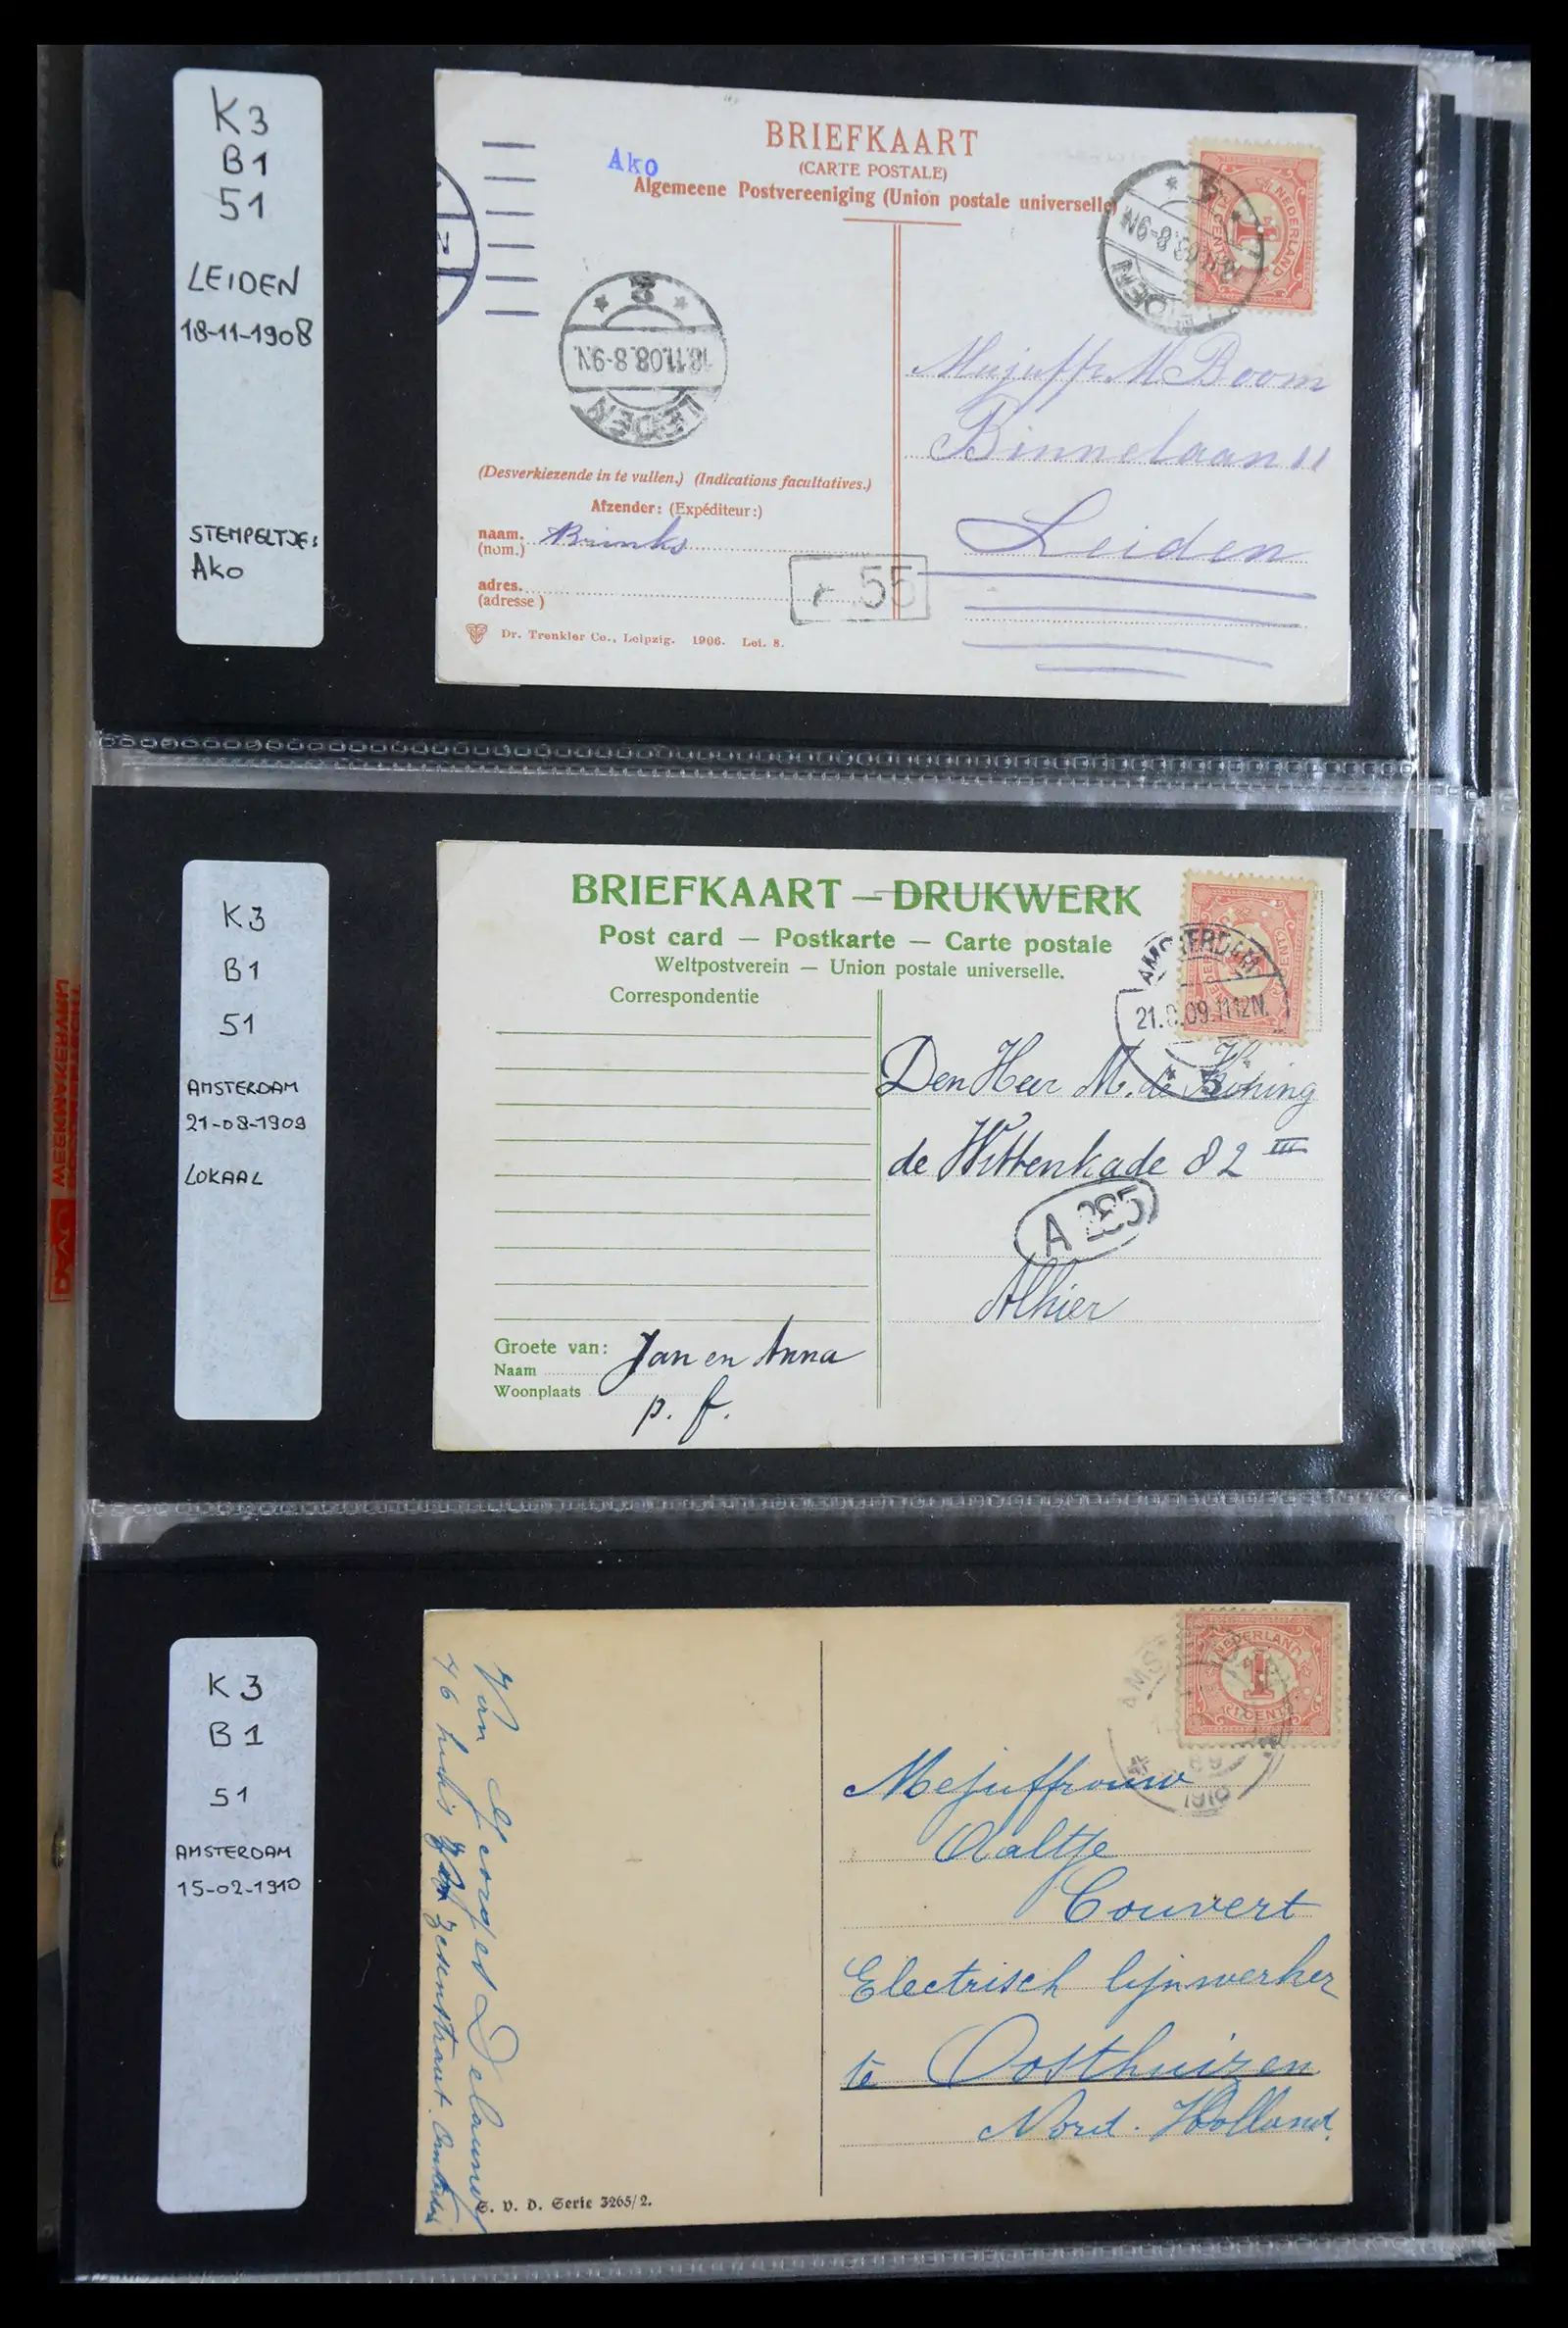 K3
B1
51
LEIDEN
18-11-1908
STEMPELTJE:
Ako
BRIEFKAART
(CARTE POSTALE)
Ako
Algemeene Postvereeniging (Union postale universelle)
3
18.11.08.8-9N.
LEIDEN
8-9N
LEIDEN
NEDERLAND
1
CENT
Mejuffr. M Boom
Binnelaan 11
Leiden
(Desverkiezende in te vullen.) (Indications facultatives.)
Afzender: (Expéditeur:)
naam. Brinks
(nom.)
adres.
(adresse)
55
Dr. Trenkler Co., Leipzig. 1906. Lei. 8.
K3
B1
51
AMSTERDAM
21-08-1909
LOKAAL
BRIEFKAART — DRUKWERK
Post card — Postkarte — Carte postale
Weltpostverein — Union postale universelle.
Correspondentie
AMSTERDAM
21. .09.11-12N.
5
Den Heer M. de Koning
de Wittenkade 82 III
A 285
Alhier
Groete van: Jan en Anna
Naam
Woonplaats
p. f.
K3
B1
51
AMSTERDAM
15-02-1910
NEDERLAND
1
CENT
AMS
1910
Mejuffrouw
Aaltje
Couvert
Electrisch lijnwerker
te Oosthuizen
Nord. Holland.
Van Georges Delaunoy
46 huis
S. V. D. Serie 3265/2.
MEEKWAKERHUN